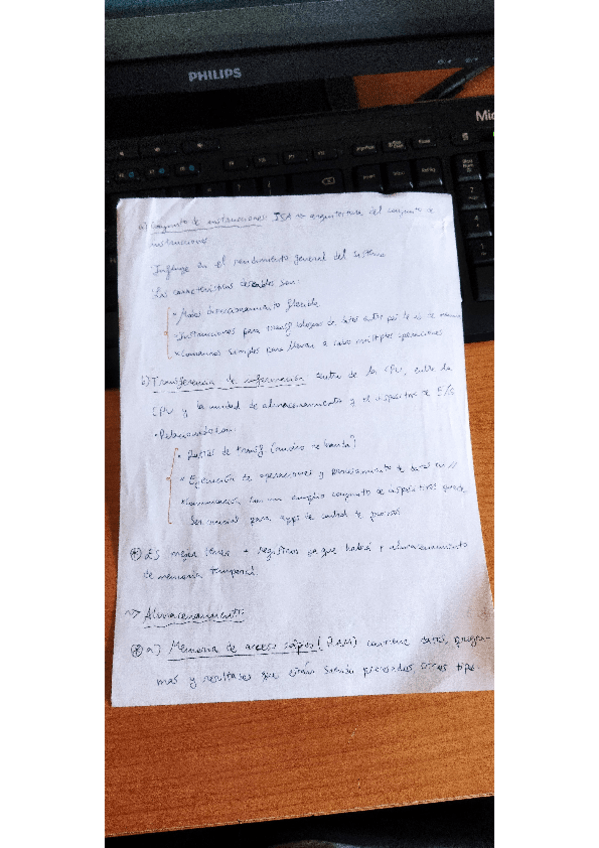 PHILIPS
Mic
a) Conjunto de instrucciones: ISA → arquitectura del conjunto de
instrucciones
Influye en el rendimiento general del sistema
Las características deseables son:
• Modos direccionamiento flexible
• Instrucciones para transf bloques de datos entre
• Comandos simples para llevar a cabo múltiples operaciones
b) Transferencia de información dentro de la CPU, entre la
CPU y la unidad de almacenamiento y el dispositivo de E/S
• Relacionado con:
• Rutas de transf (ancho de banda)
• Ejecución de operaciones y procesamiento de datos en //
• Comunicación con un amplio conjunto de dispositivos puede
ser crucial para apps de control de procesos
(*) Es mejor tener + registros ya que habrá + almacenamiento
de memoria temporal.
~> Almacenamiento:
(*) a) Memoria de acceso rápido (RAM) contiene datos, progra-
mas y resultados que están siendo procesados tipo.